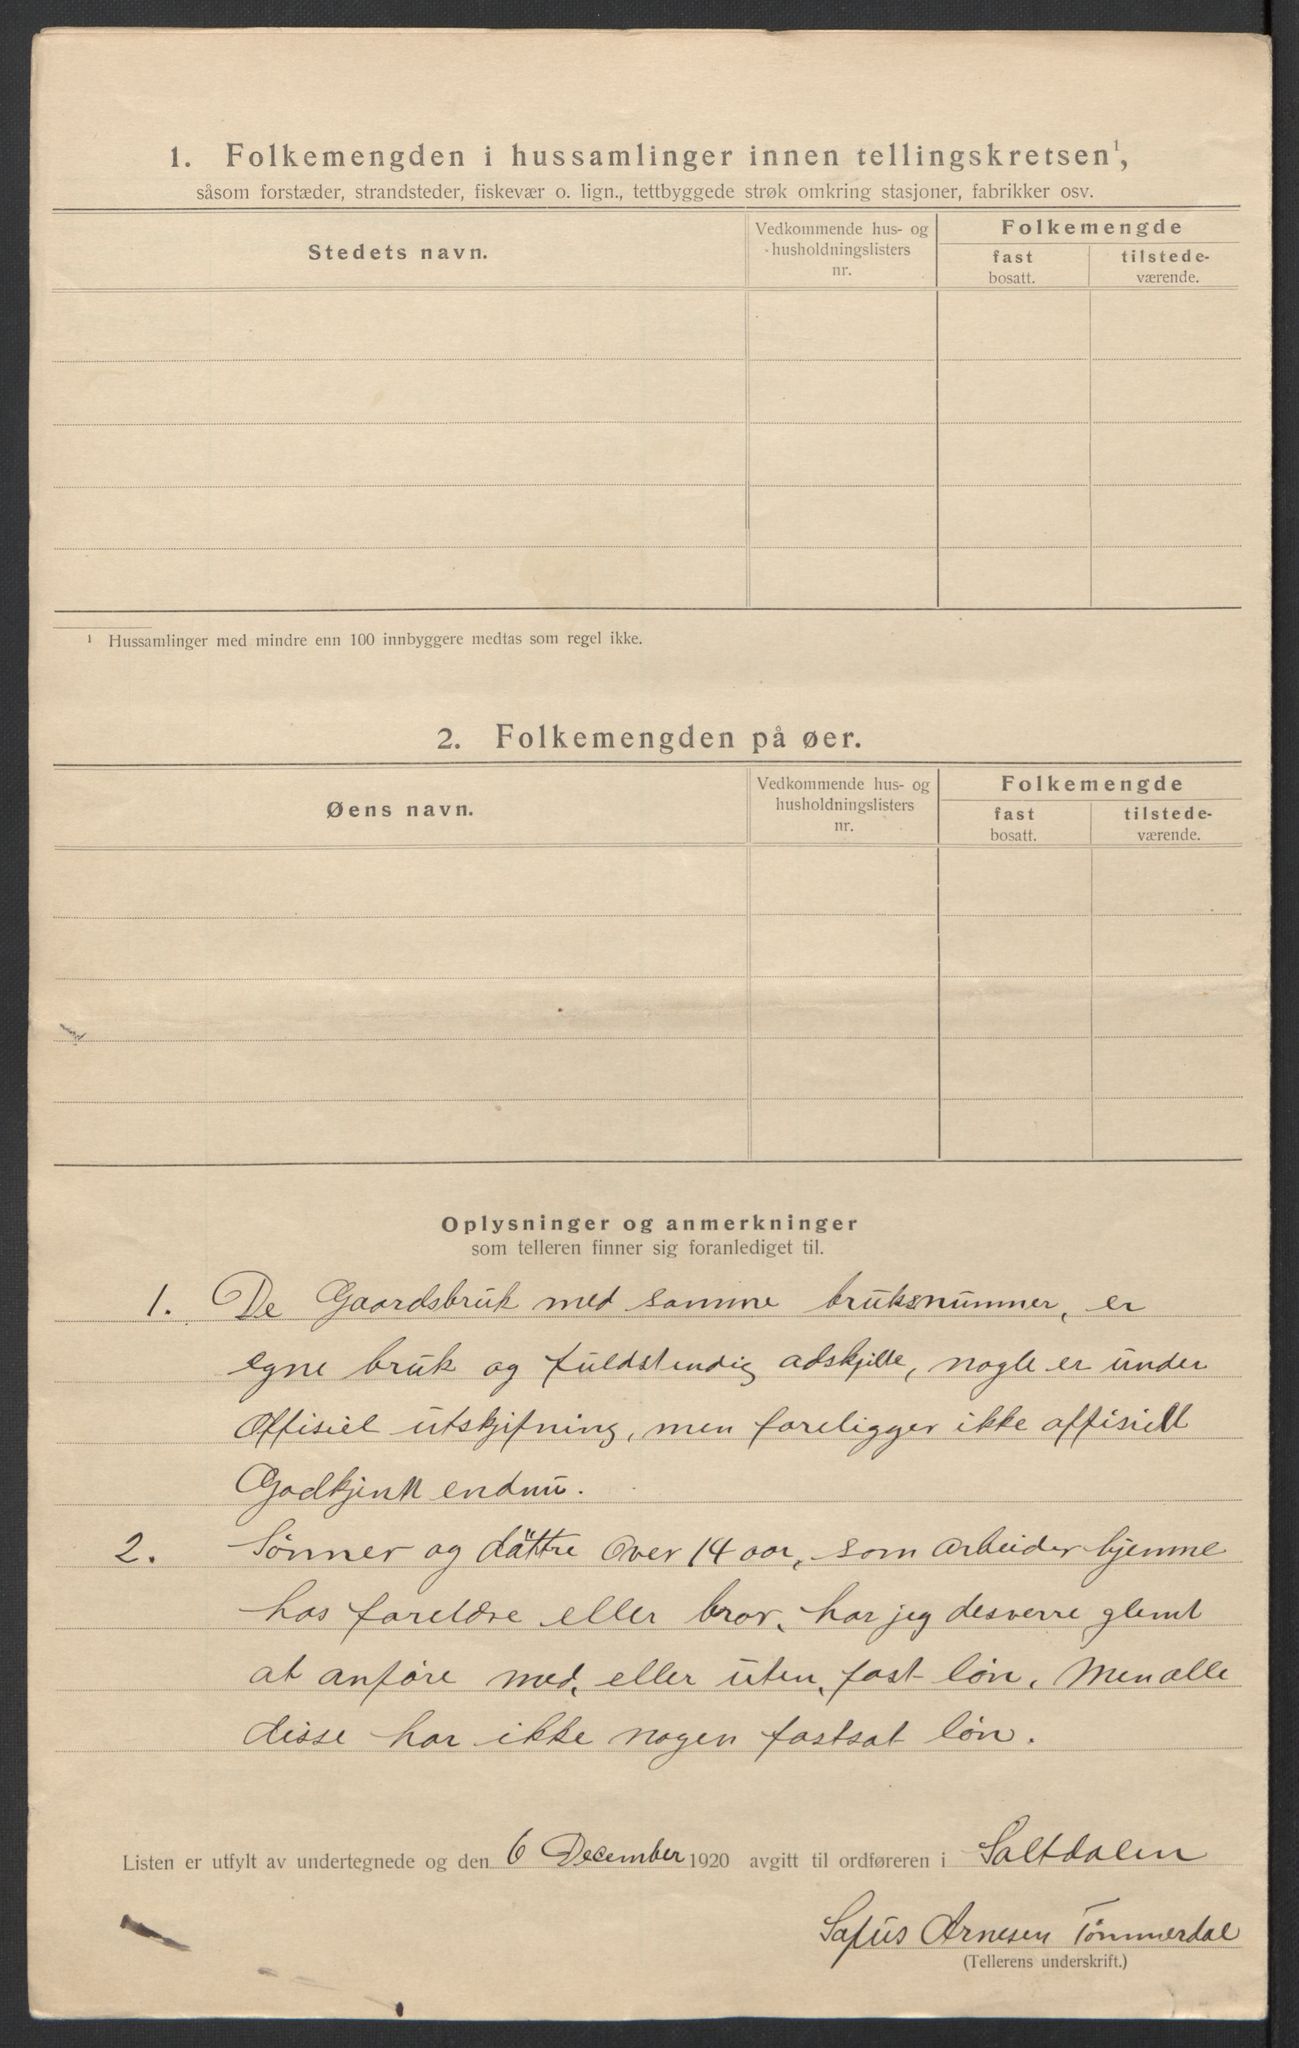 1. Folkemengden i hussamlinger innen tellingskretsen¹,
såsom forstæder, strandsteder, fiskevær o. lign., tettbyggede strøk omkring stasjoner, fabrikker osv.
Stedets navn.
Vedkommende hus- og
husholdningslisters
nr.
Folkemengde
fast
bosatt.
tilstede-
værende.
¹ Hussamlinger med mindre enn 100 innbyggere medtas som regel ikke.
2. Folkemengden på øer.
Øens navn.
Vedkommende hus- og
husholdningslisters
nr.
Folkemengde
fast
bosatt.
tilstede-
værende.
Oplysninger og anmerkninger
som telleren finner sig foranlediget til.
1. De Gaardsbruk med samme bruksnummer, er
egne bruk og fuldstendig adskjilte, nogle er under
Offisiel utskjifning, men foreligger ikke offisiell
Godkjent endnu.
2. Sønner og dättre over 14 aar, som arbeider hjemme
hos foreldre eller bror, har jeg desverre glemt
at anføre med, eller uten, fast løn. Men alle
disse har ikke nogen fastsat løn.
Listen er utfylt av undertegnede og den 6 December 1920 avgitt til ordføreren i Saltdalen
Arnesen Tømmerdal
(Tellerens underskrift.)